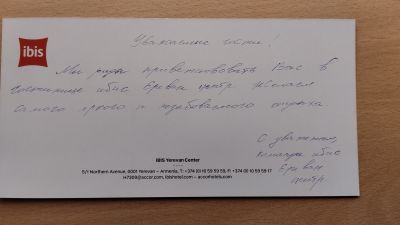 Уважаемые гости!
ibis
Мы рады приветствовать Вас в
гостинице ибис Ереван центр. Желаем
самого яркого и незабываемого отдыха.
С уважением,
команда ибис
Ереван
центр
IBIS Yerevan Center
5/1 Northern Avenue, 0001 Yerevan – Armenia, T: +374 (0) 10 59 59 59, F: +374 (0) 10 59 59 17
H7909@accor.com, ibishotel.com – accorhotels.com